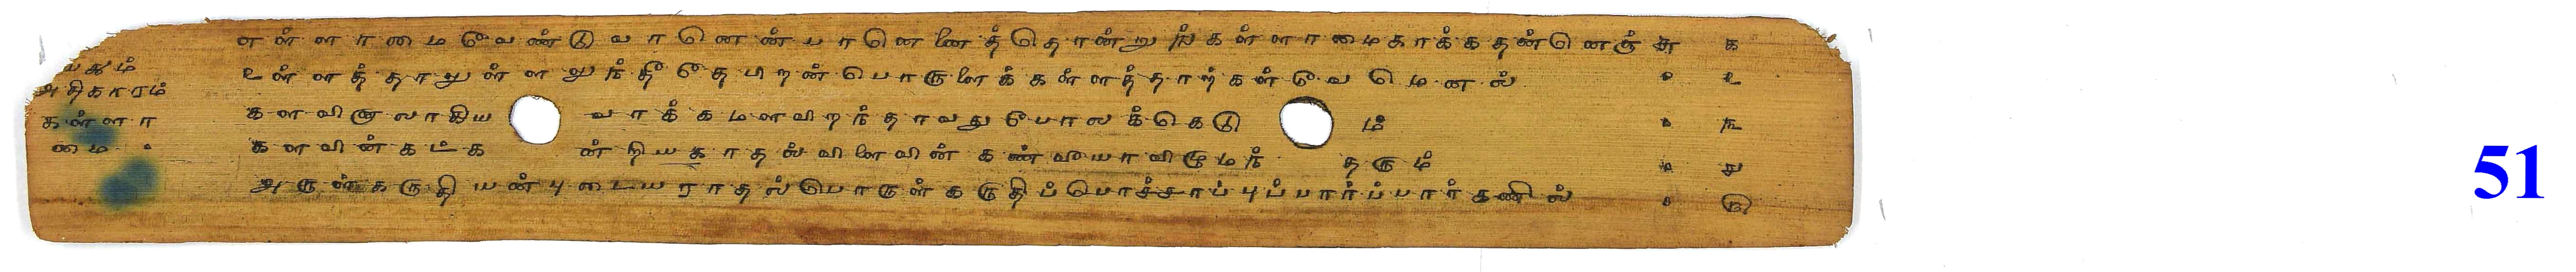 எள்ளாமைவேண்டுவானெண்பானெனைத்தொன்றுங்கள்ளாமைகாக்கதன்னெஞ்சு க
உள்ளத்தாலுள்ளலுந்தீதேபிறன்பொருளைக்கள்ளத்தாற்கள்வேமெனல் ௨
களவினாலாகியவாக்கமளவிறந்தாவதுபோலக்கெடும் ௩
களவின்கட்கன்றியகாதல்விளைவின்கண்வீயாவிழுமந்தரும் ௪
அருள்கருதியன்புடையராதல்பொருள்கருதிப்பொச்சாப்புப்பார்ப்பார்கணில் ௫
அதிகாரம்
கள்ளா
மை
51